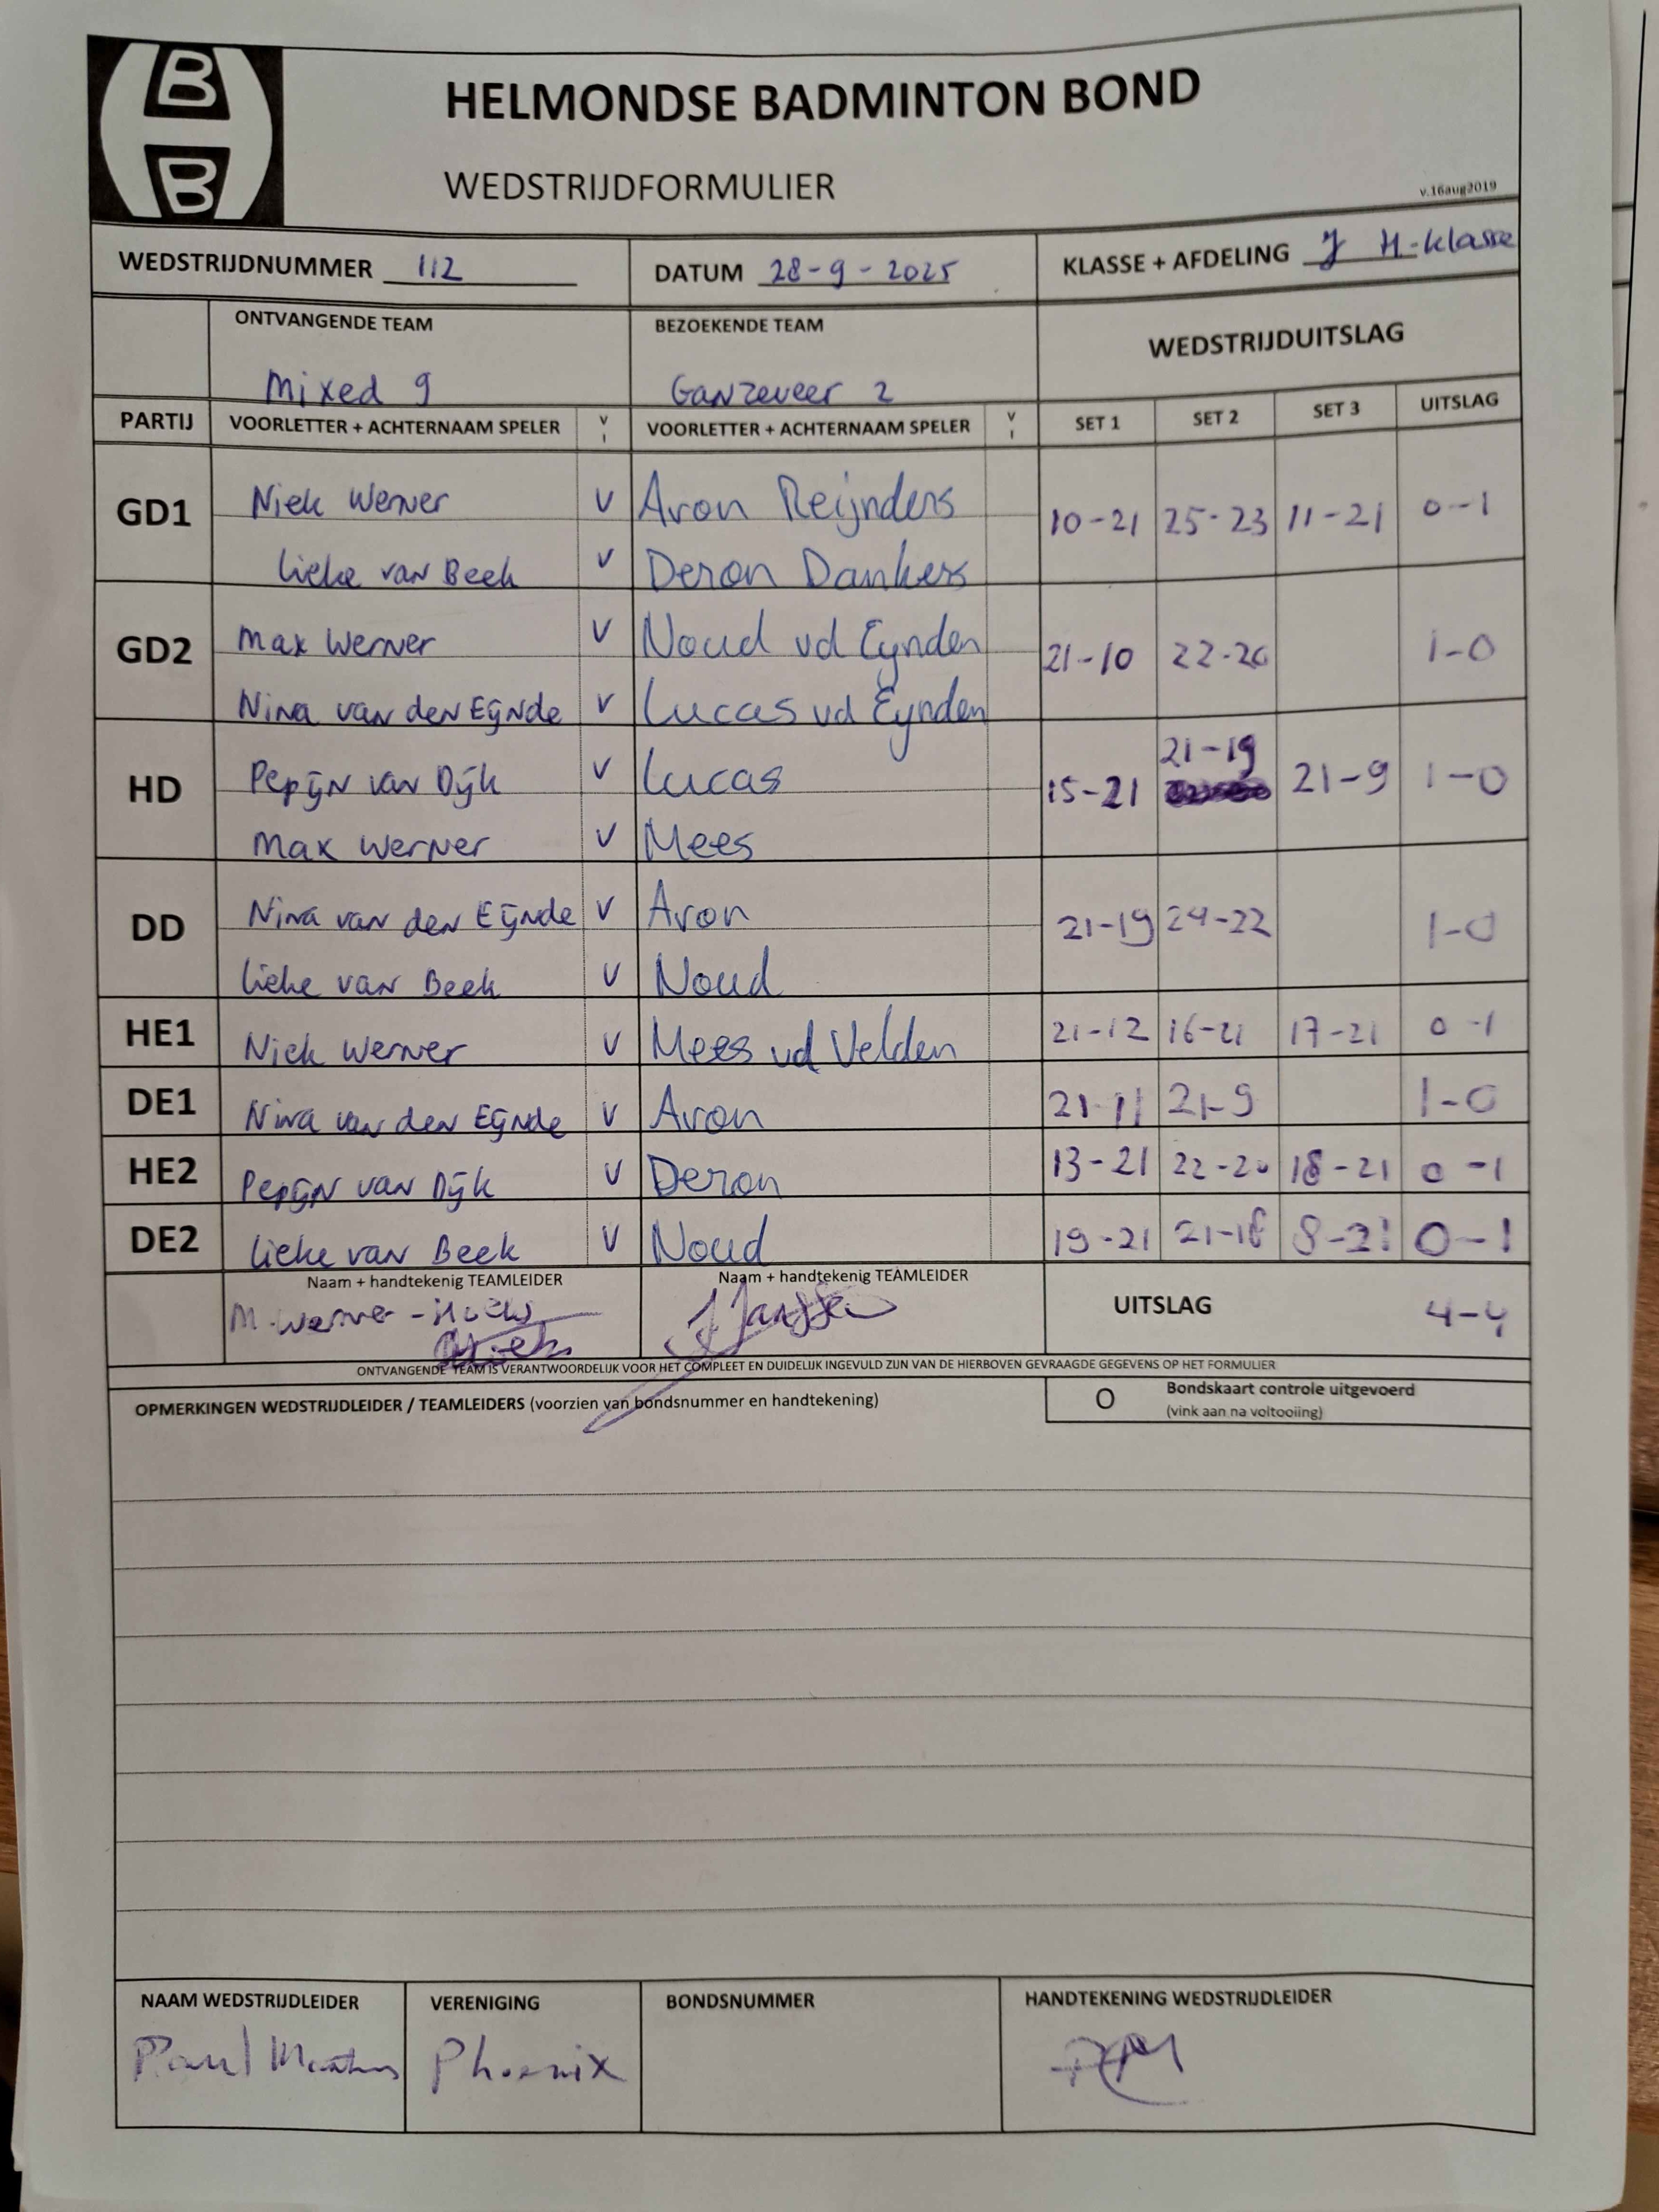 B
B
HELMONDSE BADMINTON BOND
WEDSTRIJDFORMULIER
v.16aug2019
WEDSTRIJDNUMMER 112 DATUM 28-9-2025 KLASSE + AFDELING J H-klasse
ONTVANGENDE TEAM BEZOEKENDE TEAM WEDSTRIJDUITSLAG
Mixed 9 Ganzeveer 2
PARTIJ VOORLETTER + ACHTERNAAM SPELER V I VOORLETTER + ACHTERNAAM SPELER V I SET 1 SET 2 SET 3 UITSLAG
GD1 Niek Werner V Aron Reijnders 10-21 25-23 11-21 0-1
Lieke van Beek V Deron Dankers
GD2 Max Werner V Noud vd Eynden 21-10 22-20 1-0
Nina van den Eijnde V Lucas vd Eynden
HD Pepijn van Dijk V Lucas 15-21 21-19 21-9 1-0
Max Werner V Mees
DD Nina van den Eijnde V Aron 21-19 24-22 1-0
Lieke van Beek V Noud
HE1 Niek Werner V Mees vd Velden 21-12 16-21 17-21 0-1
DE1 Nina van den Eijnde V Aron 21-11 21-9 1-0
HE2 Pepijn van Dijk V Deron 13-21 22-20 18-21 0-1
DE2 Lieke van Beek V Noud 19-21 21-18 8-21 0-1
Naam + handtekenig TEAMLEIDER Naam + handtekenig TEAMLEIDER UITSLAG 4-4
M. Werner - J Janssen
ONTVANGENDE TEAM IS VERANTWOORDELIJK VOOR HET COMPLEET EN DUIDELIJK INGEVULD ZIJN VAN DE HIERBOVEN GEVRAAGDE GEGEVENS OP HET FORMULIER
OPMERKINGEN WEDSTRIJDLEIDER / TEAMLEIDERS (voorzien van bondsnummer en handtekening) O Bondskaart controle uitgevoerd
(vink aan na voltooiing)
NAAM WEDSTRIJDLEIDER VERENIGING BONDSNUMMER HANDTEKENING WEDSTRIJDLEIDER
Paul Phoenix